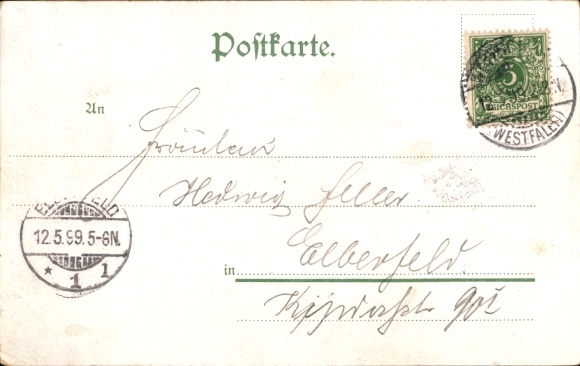 Postkarte.
5
REICHSPOST
(WESTFALEN)
An
Fräulein
Hedwig Feller
ELBERFELD
12.5.99.5-6N.
* 1 1
Elberfeld.
in